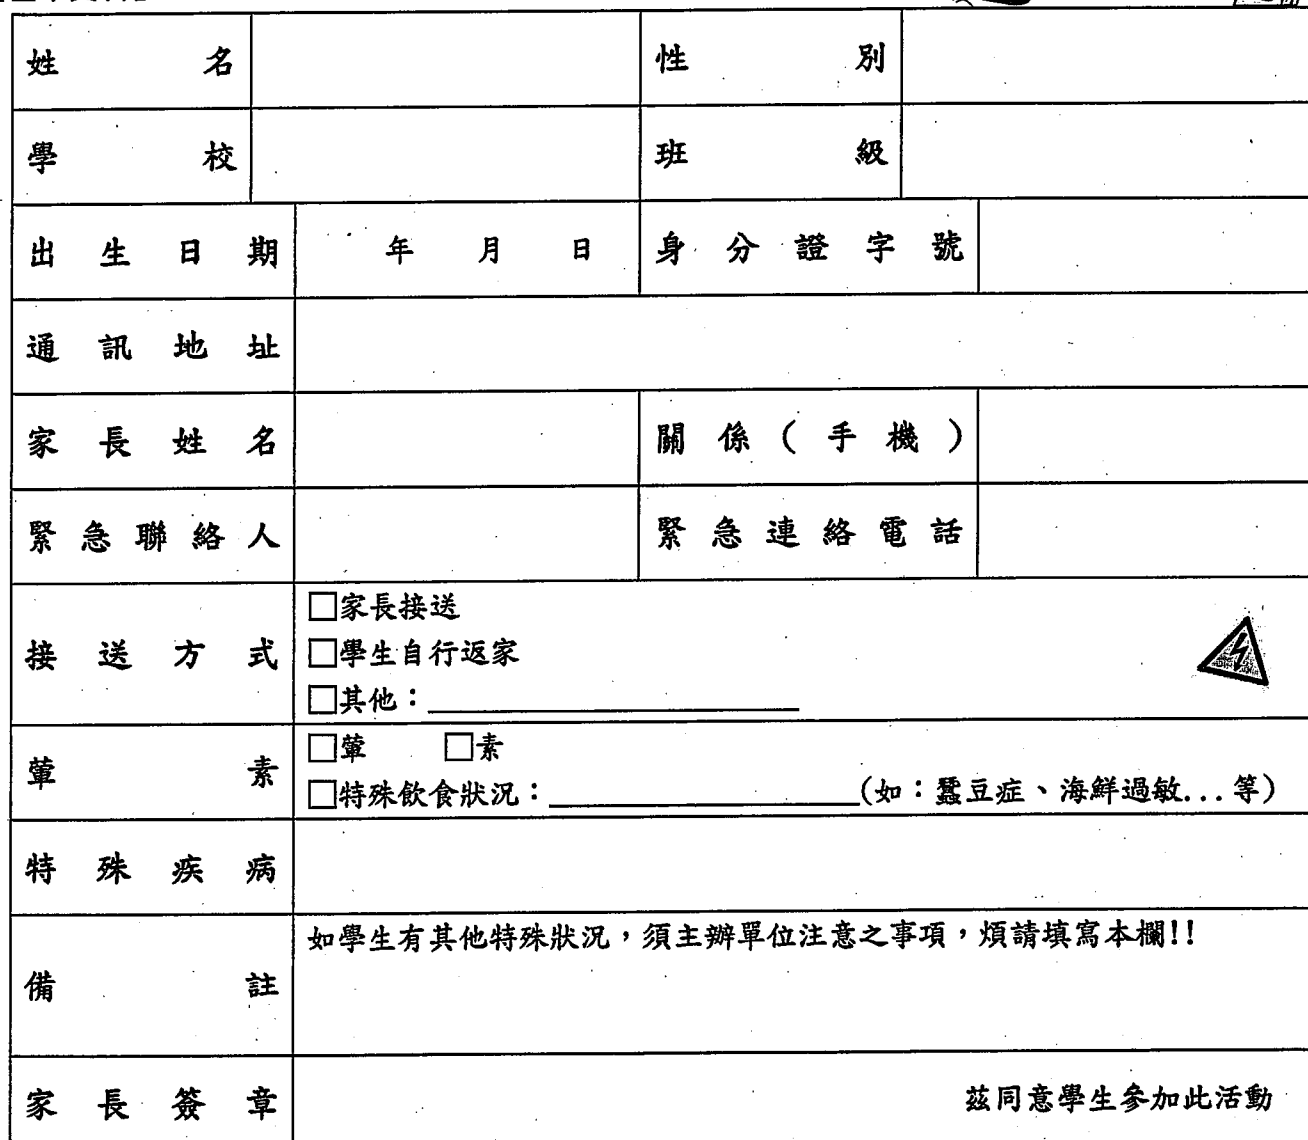 姓名 性別
學校 班級
出生日期 年 月 日 身分證字號
通訊地址
家長姓名 關係(手機)
緊急聯絡人 緊急連絡電話
接送方式
□家長接送
□學生自行返家
□其他：
葷素
□葷 □素
□特殊飲食狀況：(如：蠶豆症、海鮮過敏...等)
特殊疾病
備註
如學生有其他特殊狀況，須主辦單位注意之事項，煩請填寫本欄!!
家長簽章 茲同意學生參加此活動